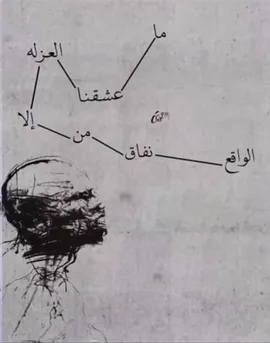 ما
عشقنا
العزله
إلا
من
نفاق
الواقع